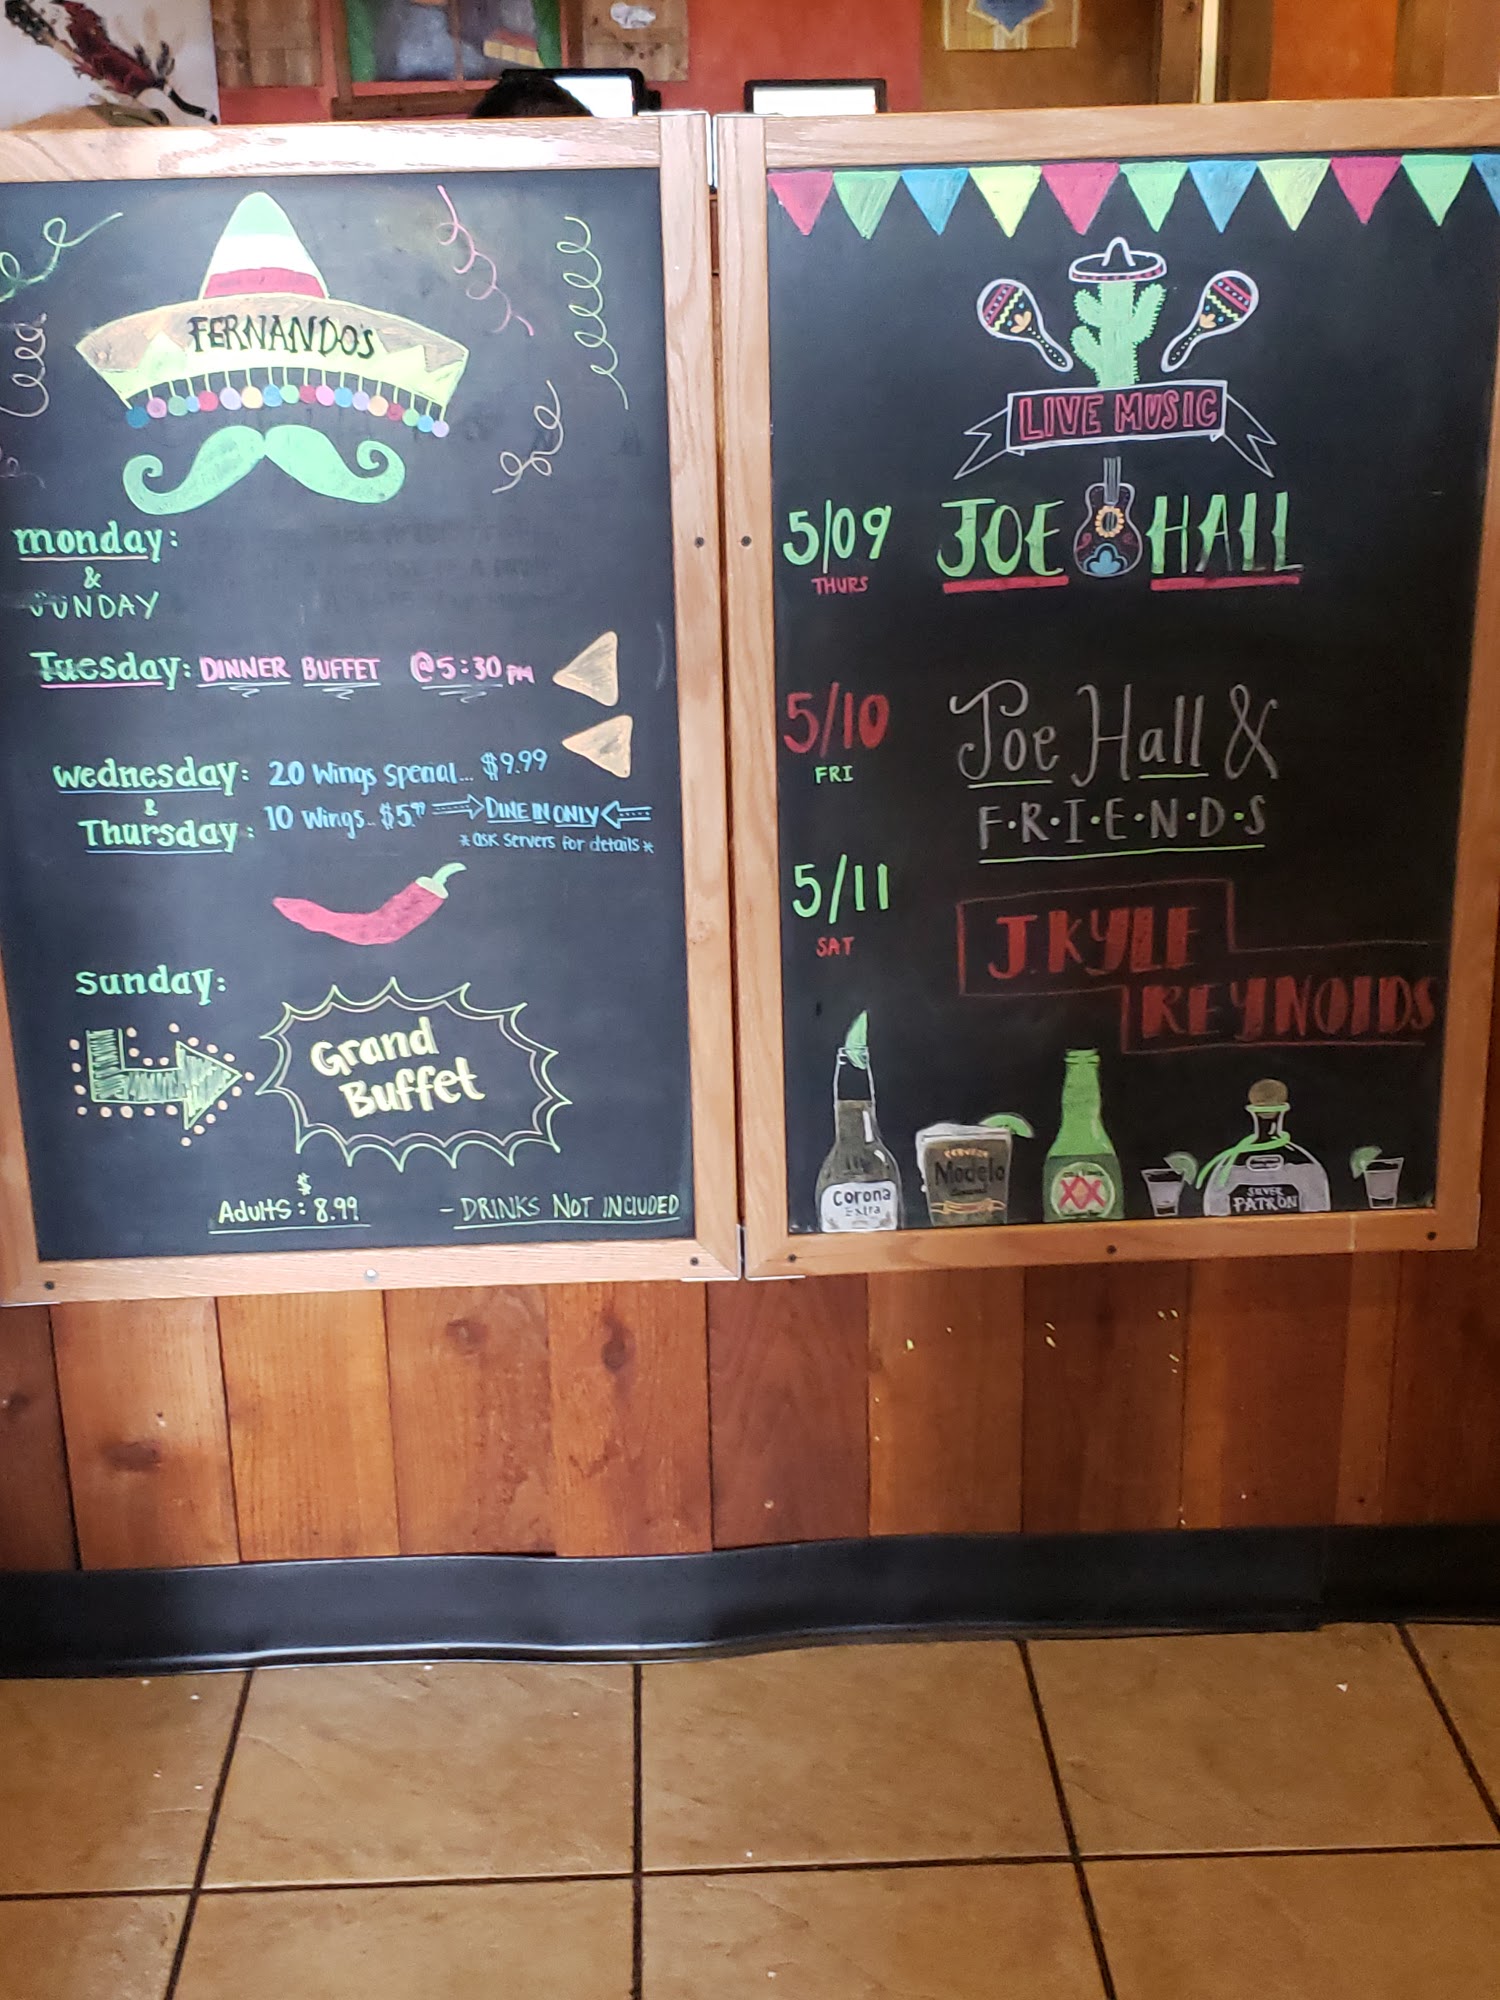 FERNANDO'S
monday:
&
SUNDAY
Tuesday: DINNER BUFFET @5:30 PM
Wednesday: 20 Wings Special... $9.99
&
Thursday: 10 Wings.. $5.99 DINE IN ONLY
*ask servers for details*
Sunday:
Grand
Buffet
$
Adults: 8.99 - DRINKS NOT INCLUDED
LIVE MUSIC
5/09 JOE HALL
THURS
5/10 Joe Hall &
FRI
F·R·I·E·N·D·S
5/11 J.KYLE
SAT
REYNOLDS
Corona
Extra
CERVEZA
Modelo
XX
SILVER
PATRÓN